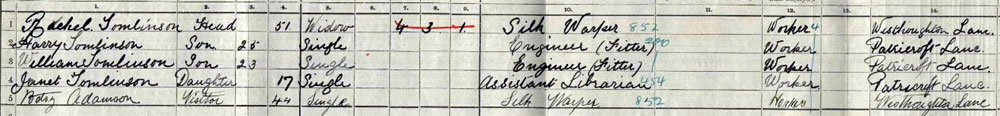 1. 2. 3. 4. 5. 6. 7. 8. 9. 10. 11. 12. 13. 14.
1 Rachel Tomlinson Head 51 Widow 4 3 1 Silk Warper 852 Worker 4 Westhoughton Lanc.
2 Harry Tomlinson Son 25 Single Engineer (Fitter) Worker Patricroft Lanc.
3 William Tomlinson Son 23 Single Engineer (Fitter) Worker Patricroft Lanc.
4 Janet Tomlinson Daughter 17 Single Assistant Librarian 454 Worker Patricroft Lanc.
5 Betsy Adamson Visitor 44 Single Silk Warper 852 Worker Westhoughton Lanc